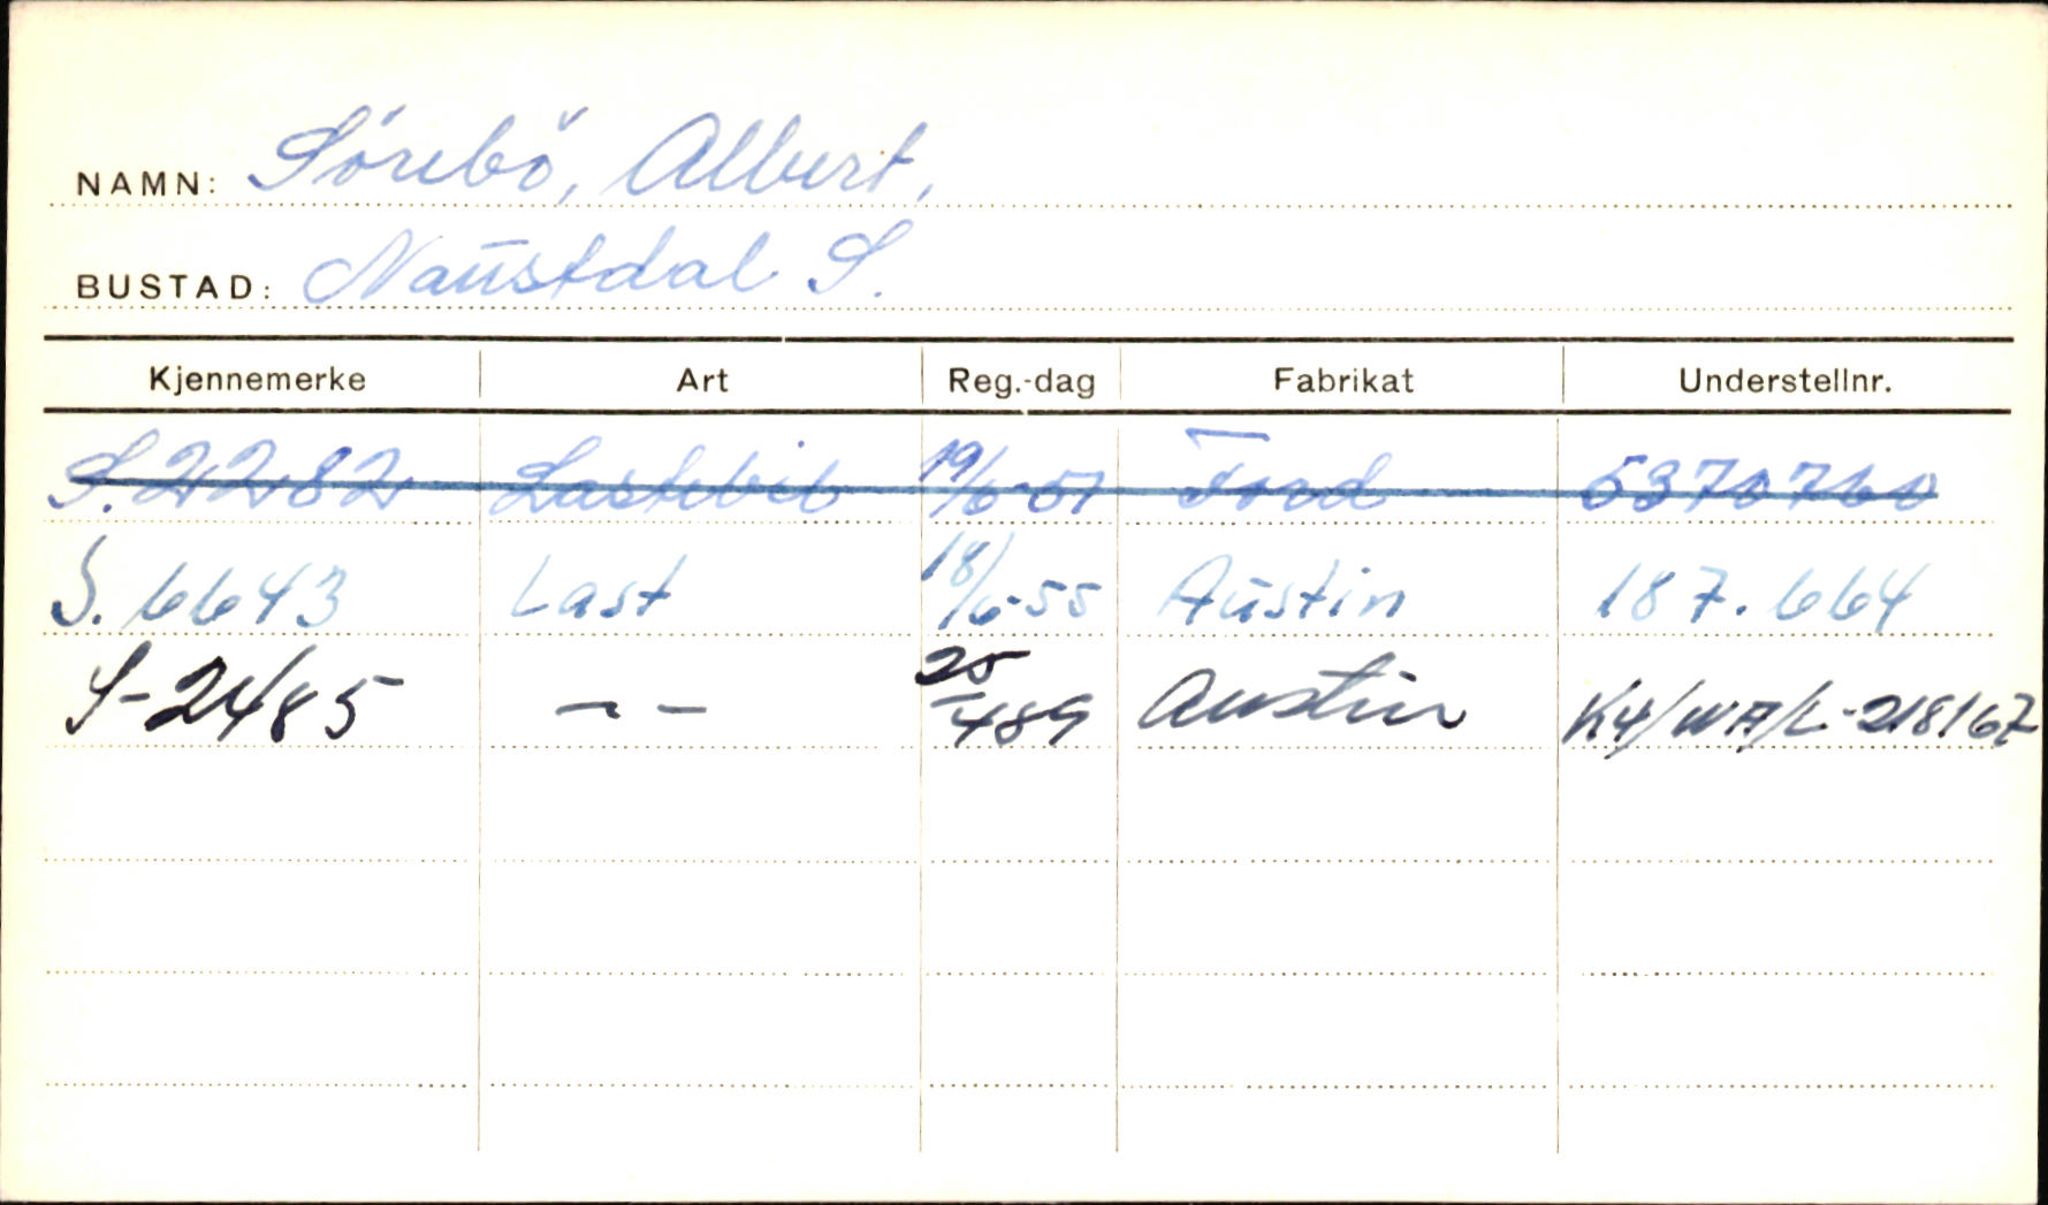 NAMN: Sörebö, Albert,
BUSTAD: Naustdal S.
Kjennemerke Art Reg.-dag Fabrikat Understellnr.
S. 2282 Lastebil 19/6-51 Ford 5370760
S. 6643 Last 18/6-55 Austin 187.664
S-2485 - - 25/4 89 Austin K4/WA/L-218167